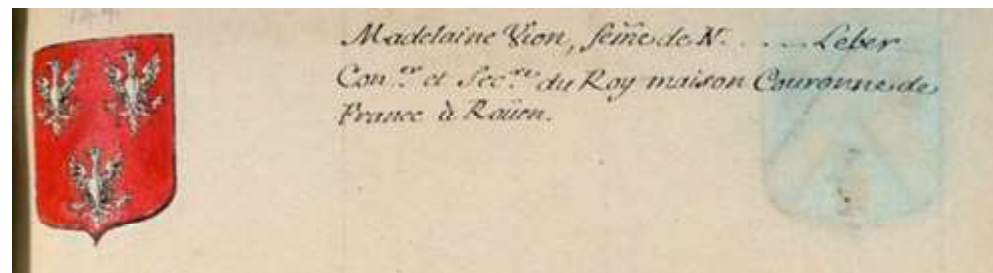 Madelaine Vion, fem̃e de N. . . . . . Leber
Con.er et Sec.re du Roy maison Couronne de
France à Roüen.